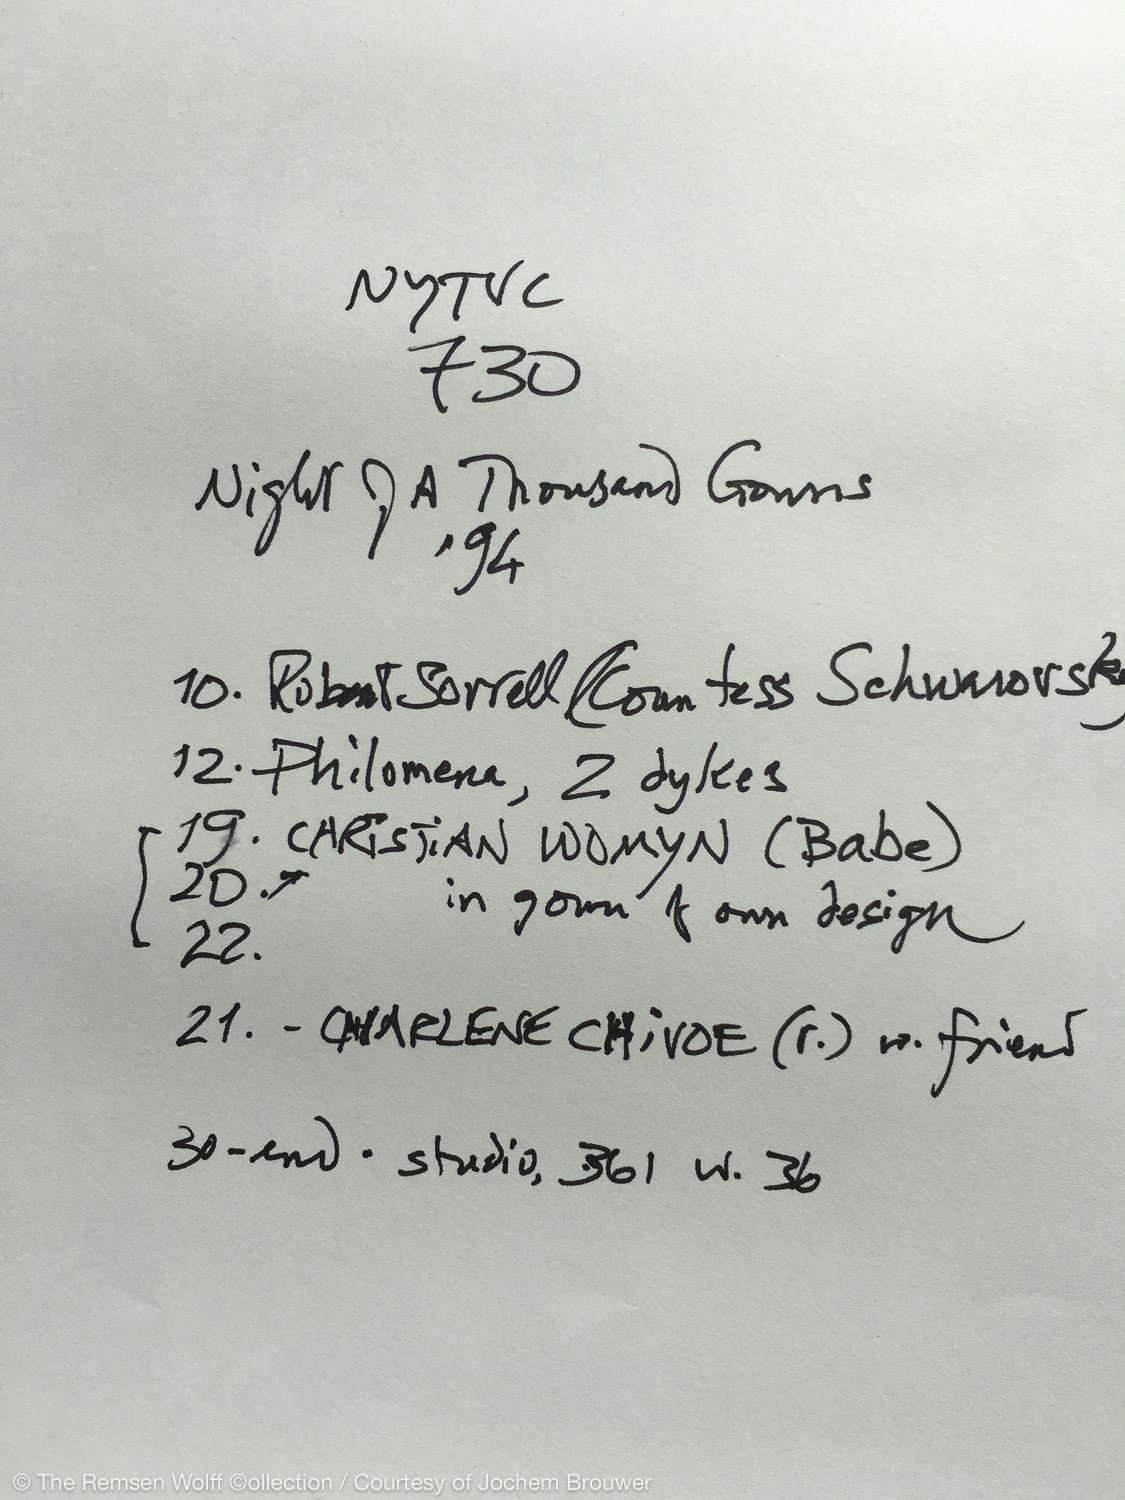 NYTVC
730
Night of A Thousand Gowns
'94
10. Robert Sorrell (Countess
12. Philomena, 2 dykes
19. CHARISTIAN WOMYN (Babe)
20. in gown of own design
22.
21. - CHARLENE CHIVOE (r.) w. friend
30-end. studio, 361 w. 36
© The Remsen Wolff ©ollection / Courtesy of Jochem Brouwer